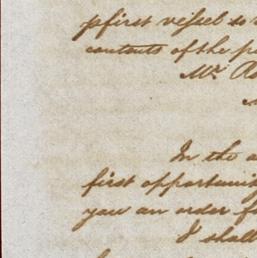 first vessel to
contents of the
Mr. Ro
In the a
first opportunit
you an order fo
I shall